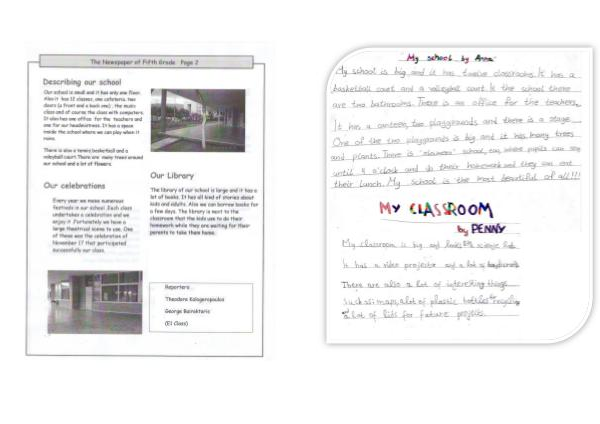 The Newspaper of Fifth Grade Page 2
Describing our school
Our school is small and it has only one floor.
Also it has 12 classes, one cafeteria, two
doors (a front and a back one), the music
class and of course the class with computers.
It also has one office for the teachers and
one for our headmistress. It has a space
inside the school where we can play when it
rains.
There is also a tennis, basketball and a
volleyball court. There are many trees around
our school and a lot of flowers.
Our celebrations
Every year we make numerous
festivals in our school. Each class
undertakes a celebration and we
enjoy it. Fortunately we have a
large theatrical scene to use. One
of these was the celebration of
November 17 that participated
successfully our class.
Our Library
The library of our school is large and it has a
lot of books. It has all kind of stories about
kids and adults. Also we can borrow books for
a few days. The library is next to the
classroom that the kids use to do their
homework while they are waiting for their
parents to take them home.
Reporters
Theodore Kalogeropoulos
George Bairaktaris
(E1 Class)
My school by Anna
My school is big and it has twelve classrooms. It has a
basketball court and a volleyball court. In the school there
are two bathrooms. There is an office for the teachers.
It has a canteen, two playgrounds and there is a stage.
One of the two playgrounds is big and it has many trees
and plants. There is school, where pupils can stay
until 4 o'clock and do their homework and they can eat
their lunch. My school is the most beautiful of all!!!
MY CLASSROOM
by PENNY
My classroom is big and looks like science lab.
It has a video projector and a lot of
There are also a lot of interesting things
such as maps, a lot of plastic bottles
a lot of lids for future projects.